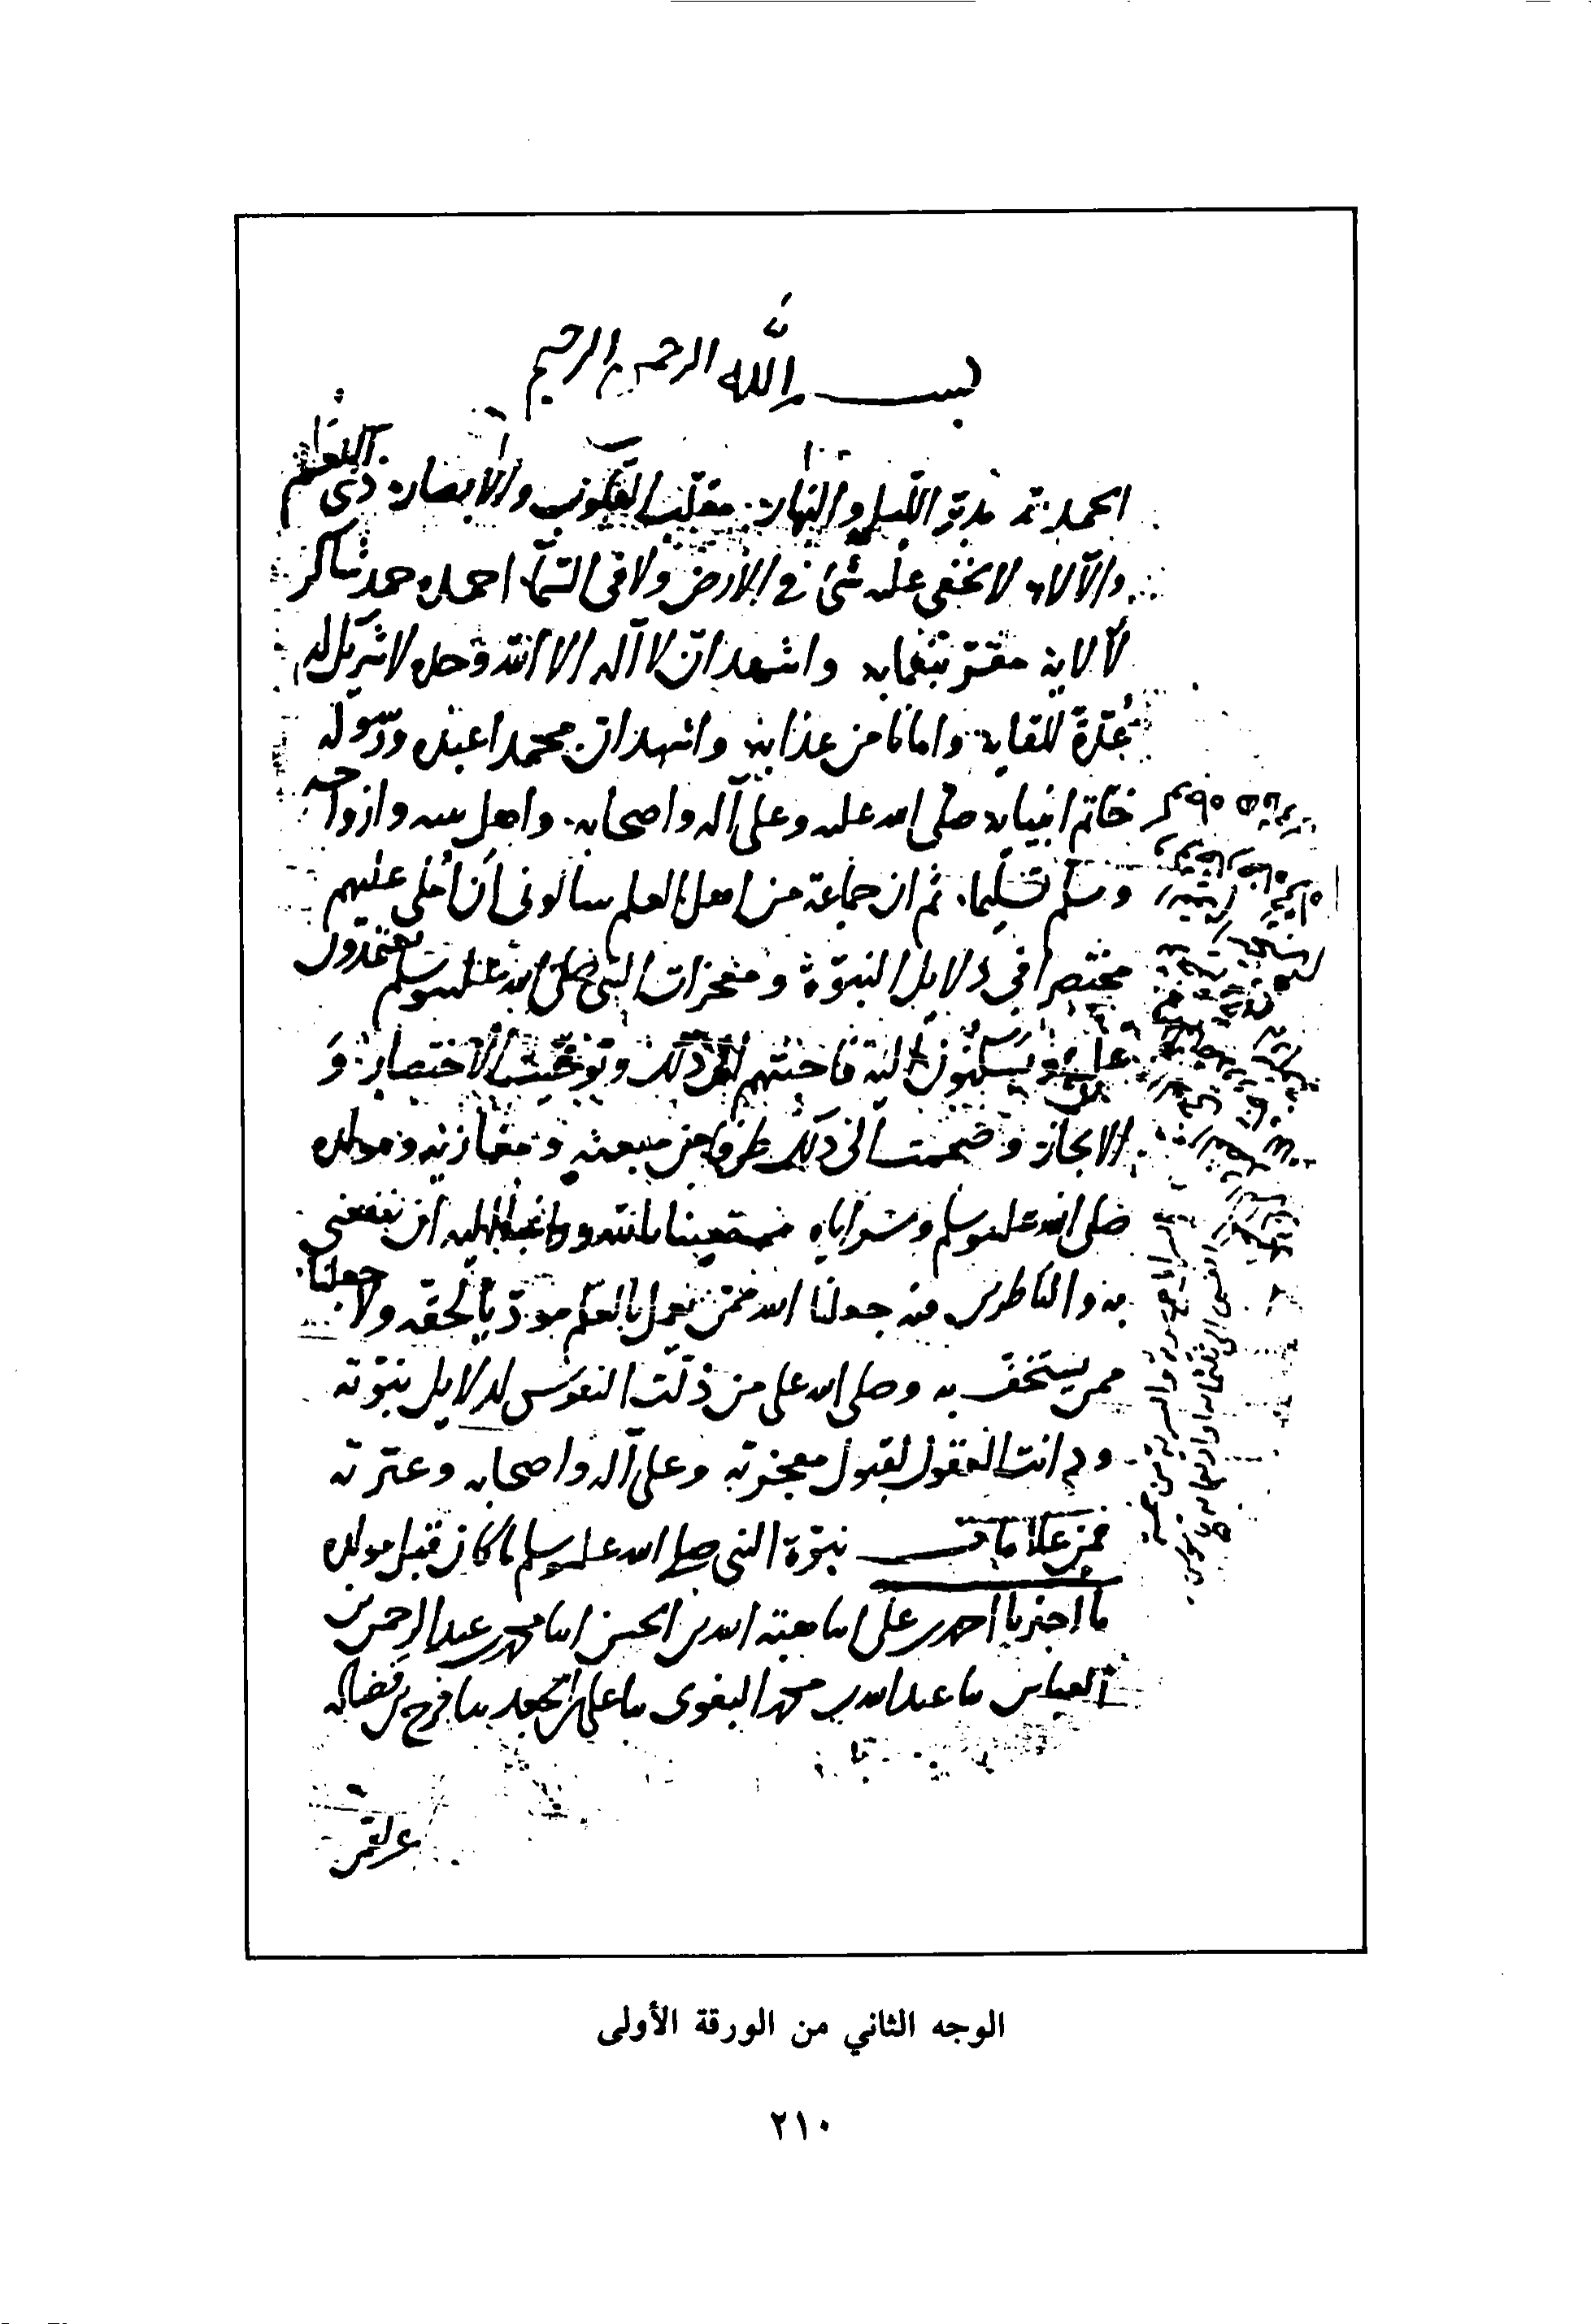 بسم الله الرحمن الرحيم
الحمد لله مدبر الليل والنهار مقلب القلوب والابصار ذى النعم
والآلاء لا يخفى عليه شئ في الارض ولا فى السماء احمده حمد شاكر
لآلايه مقر بنعمايه واشهد ان لا اله الا الله وحده لا شريك له
عُدّةً للقايه وامانا من عذابه واشهد ان محمدا عبده ورسوله
خاتم انبيايه صلى الله عليه وعلى آله واصحابه واهل بيته وازواجه
وسلم تسليما ثم ان جماعة من اهل العلم سالونى ان املى عليهم
مختصرا فى دلايل النبوة ومعجزات النبي صلى الله عليه وسلم يعتمدون
عليه ويسكنون اليه فاجبتهم الى ذلك وتوخيت الاختصار و
الايجاز وضممت الى ذلك طرفا من مبعثه ومغازيه ومولده
صلى الله عليه وسلم وسراياه مستعينا بالله وراغبا اليه ان ينفعنى
به والناظرين فيه جعلنا الله ممن يعمل بالعلم موديا لحقه ولا جعلنا
ممن يستخف به وصلى الله على من ذلت النفوس لدلايل نبوته
ودانت العقول لقبول معجزته وعلى آله واصحابه وعترته
فمن علامات نبوة النبى صلى الله عليه وسلم ما كان قبل مولده
ما اخبرنا احمد بن على انا هبة الله بن الحسن انا محمد بن عبد الرحمن بن
العباس نا عبد الله بن محمد البغوى نا على بن الجعد نا فرج بن فضاله
عن لقمن
الوجه الثاني من الورقة الأولى
٢١٠